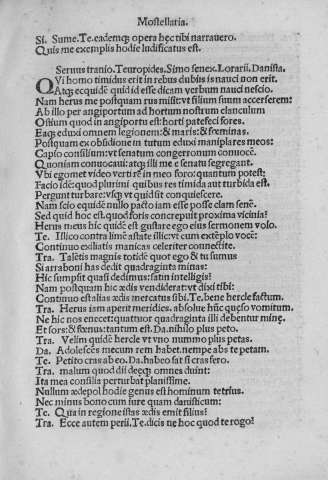 Mostellaria.
Si. Sume. Te. eademq; opera hęc tibi narrauero.
Quis me exemplis hodie ludificatus est.
Seruus tranio. Teuropides. Simo senex. Lorarii. Danista.
QVi homo timidus erit in rebus dubiis is nauci non erit.
Atq; ecquidē quid id esse dicam verbum nauci nescio.
Nam herus me postquam rus misit: vt filium suum accerserem:
Ab illo per angiportum ad hortum nostrum clanculum
Ostium quod in angiportu est horti patefeci fores.
Eaq; eduxi omnem legionem: & maris: & fœminas.
Postquam ex obsidione in tutum eduxi maniplares meos:
Capio consilium: vt senatum congerronum conuocē.
Quoniam conuocaui: atq; illi me e senatu segregant.
Vbi egomet video verti rē in meo foro: quantum potest;
Facio idē: quod plurimi quibus res timida aut turbida est.
Pergunt turbare: vsq; vt quid sit conquiescere.
Nam scio equidē nullo pacto iam esse posse clam senē.
Sed quid hoc est. quod foris concrepuit proxima vicinia?
Herus meus hic quidē est gustare ego eius sermonem volo.
Te. Illico contra limē astate illic: vt cum extēplo vocē:
Continuo exiliatis manicas celeriter connectite.
Tra. Talētis magnis totidē quot ego & tu sumus
Si arraboni has dedit quadraginta minas:
Hic sumpsit quasi dedimus: satin intelligis?
Nam postquam hic ædis vendiderat: vt dixi tibi:
Continuo est alias ædis mercatus sibi. Te. bene hercle factum.
Tra. Herus iam aperit meridies. absolue hūc quęso vomitum.
Ne hic nos enecet: quattuor quadraginta illi debentur minę.
Et sors: & fœnus: tantum est. Da. nihilo plus peto.
Tra. Velim quidē hercle vt vno nummo plus petas.
Da. Adolescēs mecum rem habet. nempe abs te petam.
Te. Petito cras abeo. Da. habeo sat si cras fero.
Tra. malum quod dii deęq; omnes duint:
Ita mea consilia perturbat planissime.
Nullum ædepol hodie genus est hominum tetrius.
Nec minus bono cum iure quam danisticum:
Te. Qua in regione istas ædis emit filius?
Tra. Ecce autem perii. Te. dicis ne hoc quod te rogo?